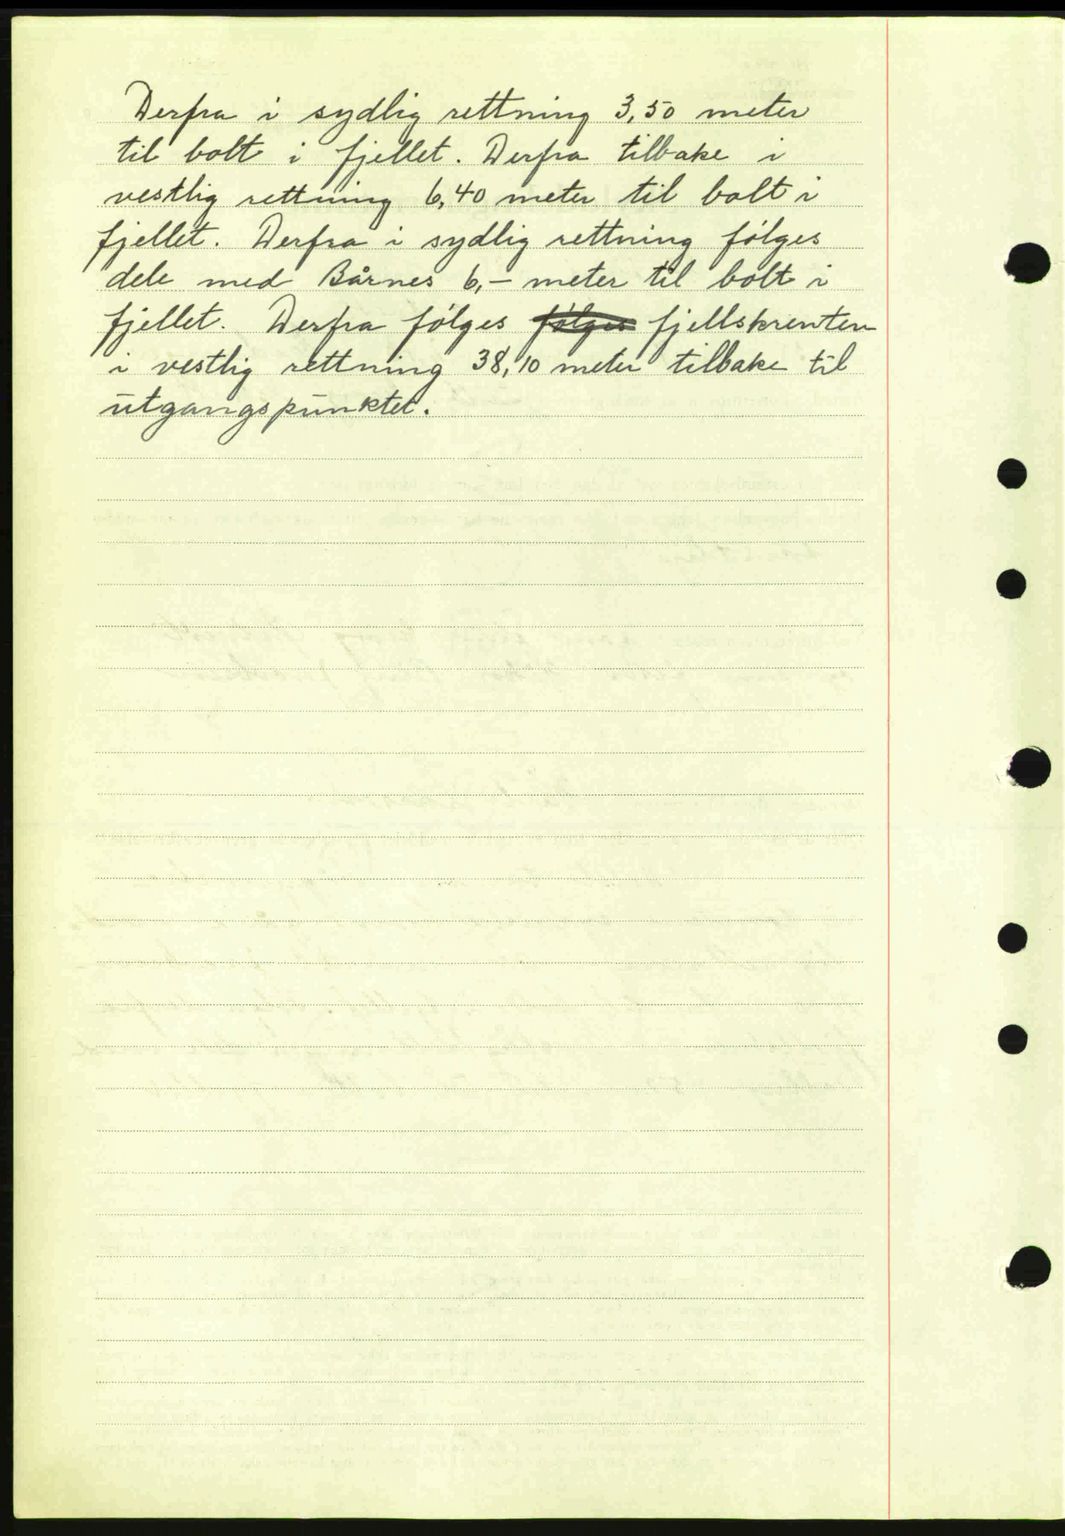 Derfra i sydlig rettning 3,50 meter
til bolt i fjellet. Derfra tilbake i
vestlig rettning 6,40 meter til bolt i
fjellet. Derfra i sydlig rettning følges
dele med Bårnes 6,- meter til bolt i
fjellet. Derfra følges følges fjellskrenten
i vestlig rettning 38,10 meter tilbake til
utgangspunktet.